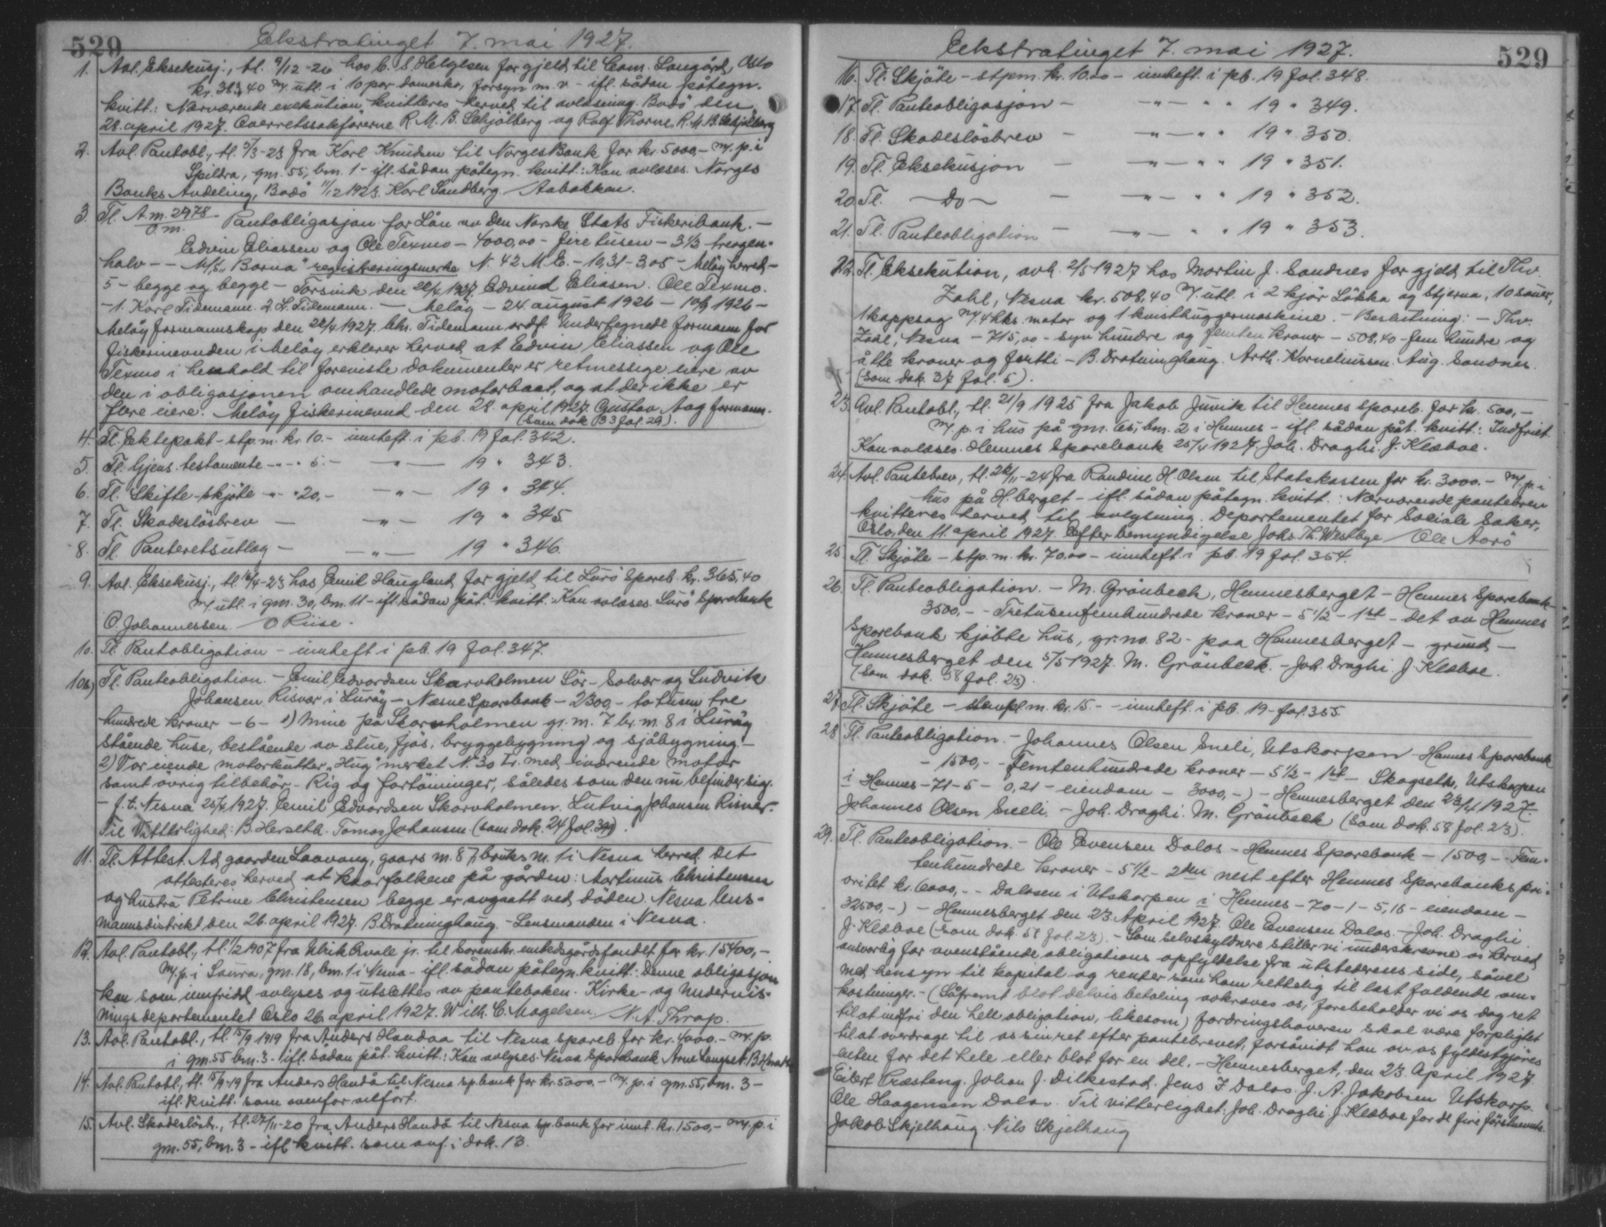 529
Ekstratinget 7. mai 1927.
1. Avl. Eksekusj., tl. 9/12-20 hos C. S. Helgesen for gjeld til Com. Langård, Oslo
kr. 313,40 m/ utl. i 10 par damesko, forsyn m. v - ifl. sådan påtegn.
kvitt: Nærværende exekution kvitteres herved til avløsning. Bodö den
28. april 1927. Overretssakförerne R. M. B. Schjölberg og Rolf Thorne R. M. B. Schjölberg
2. Avl. Pantobl., tl. 7/3-23 fra Karl Knudsen til Norges Bank for kr 5000,- m/ p. i
Spildra, gm. 55, bm. 1 - ifl. sådan påtegn. kvitt: Kan avløses. Norges
Banks Avdeling, Bodö 11/12 1923. Karl Sandberg Aabakken.
3. Tl. A.m. 2978 Pantobligasjon for Lån av Den Norske Stats Fiskeribank. -
Edvin Eliassen og Ole Texmo - 4000,00 - fire tusen - 3 1/3 treogen-
halv - - M/k "Borna" registreringsmerke N. 42 M. E. - 10,31 - 3,05 - Melöy herred -
5 - begge og begge - Forsvik den 22/4 1927 Edvind Eliasen. Ole Texmo.
- 1. Karl Tidemann. 2. H. Tidemann. - Melöy - 24. august 1926 - 10/9 1926 -
Melöy formannskap den 22/4 1927. Chr. Tidemann ordf. Undertegnede formann for
fiskerinevnden i Melöy erklerer herved at Edvin Eliassen og Ole
Texmo i henhold til foreviste dokumenter er retmessige eiere av
den i obligasjonen omhandlede motorbaat, og at der ikke er
flere eiere. Melöy fiskerinevnd den 28. april 1927. Gustav Aag formann.
(Som dok 33 fol. 29).
4. Tl. Ektepakt - stp. m. kr. 10.- innheft. i pb. 19 fol. 342.
5. Tl. Gjens. testamente - " - 5.- - " - 19 " 343.
6. Tl. Skifte-skjöte - " - 20,- - " - 19 " 344.
7. Tl. Skadeslösbrev - - " - 19 " 345
8. Tl. Panteretsutlæg - - " - 19 " 346.
9. Avl. Eksekusj., tl. 4/4-23 hos Emil Haugland for gjeld til Lurö Spareb. kr. 365,40
m/ utl. i gm. 30, bm. 11 - ifl. sådan påt. kvitt: Kan avløses. Lurö Sparebank
C. Johannessen O Riise.
10. Tl. Pantobligation - innheft i pb. 19 fol. 347
10a) Tl. Panteobligation. - Emil Edvardsen Skarvholmen Sör-Solvær og Ludvik
Johansen Risvær i Luröy - Nesne Sparebank - 2300,- totusen tre
hundrede kroner - 6 - 1) Mine på Skarvholmen gr. m. 7 br. m. 8 i Luröy
stående huse, bestående av stue, fjös, bryggebygning og sjöbygning. -
2) Vor eiende motorkutter "Hug" merket N. 30 Lr. med ivarende motor
samt övrig tilbehör. Rig og fortöininger, således som den nu befinder sig.
- f. t. Nesna 25/4 1927. Emil Edvardsen Skarvholmen. Ludvig Johansen Risvær.
Til Vitterlighed: B. Herseth. Tomas Johansen (som dok. 24 fol. 39).
11. Tl. Attest. Ad gaarden Laavong, gaars m. 87, bruks m. 1 i Nesna herred det
attesteres herved at kaarfolkene på gården: Martinus Christensen
og hustru Petrine Christensen begge er avgaatt ved döden. Nesna lens-
mannsdistrikt den 26 april 1927. B. Drotninghaug - Lensmanden i Nesna.
12. Avl. Pantobl., tl. 1/2 1907 fra Ulrik Qvale jr. til Lovensk. enkesgårdsfondet for kr. 15400,-
m/ p. i Saura, gm. 18, bm. 1 i Nesna - ifl. sådan påtegn. kvitt: Denne obligasjon
kan som innfridd avlyses og utslettes av panteboken. Kirke- og Undervis-
ningsdepartementet Oslo 26 april 1927. Wilh. C. Magelsen N. A. Thrap.
13. Avl. Pantobl., tl. 15/9 1919 fra Anders Handaa til Nesna spareb for kr. 4000.- m/ p.
i gm. 55 bm. 3 - ifl. sådan påt. kvitt: Kan avlyses Nesna Sparebank Arne Langset.
14. Avl. Pantobl., tl. 15/9-19 fra Anders Handå til Nesna sp.bank for kr. 5000 - m/ p. i gm. 55, bm. 3 -
ifl. kvitt. som ovenfor utfört.
15. Avl. Skadeslösbr., tl. 27/11-20 fra Anders Handå til Nesna sp.bank for innt. kr. 1500,- m/ p. i
gm. 55, bm. 3 - ifl. kvitt. som anf. i dok. 13.
Ekstratinget 7. mai 1927.
529
16. Tl. Skjöte - stpm. kr. 10.00 - innheft. i pb. 19 fol. 348.
17. Tl. Panteobligasjon - - " - " " 19 " 349.
18. Tl. Skadeslösbrev - - " - " " 19 " 350.
19. Tl. Eksekusjon - - " - " " 19 " 351.
20. Tl. - Do - - - " - " " 19 " 352.
21. Tl. Panteobligation - - " - " " 19 " 353.
22. Tl. Eksekution, avh. 2/5 1927 hos Martin J. Sandnes for gjeld til Thv.
Zahl, Nesna kr. 508,40 m/ utl. i 2 kjör Likka og Stjerna, 10 sauer,
1 kappsag m/ 4 hks. motor og 1 kvisthuggermaskine. - Beslutning: - Thv.
Zahl, Nesna - 715,00 - syv hundre og femten kroner - 508,40 - fem hundre og
åtte kroner og förti - B Drotninghaug. Arth. Korneliussen. Aug. Sandnes.
(som dok. 37 fol. 5).
23. Avl. Pantobl., tl. 21/9 1925 fra Jakob Juvik til Hemnes Spareb. for kr. 500,-
m/ p. i hus på gm. 65, bm. 2 i Hemnes - ifl. sådan påt. kvitt: Indfriet
Kan avløses. Hemnes Sparebank 25/4 1927 Joh. Draghi. J. Klæboe.
24. Avl. Pantebrev, tl. 26/11-24 fra Randine H. Olsen til Statskassen for kr. 3000.- m/ p. i
hus på H.berget - ifl. sådan påtegn. kvitt: Nærværende pantebrev
kvitteres herved til avlysning. Departementet for Sociale Saker,
Oslo, den 11. april 1927 Efter bemyndigelse Johs. Th. Westbye Ole Aarö
25. Tl. Skjöte - stp. m. kr. 70.00 - innheft i pb. 19 fol. 354.
26. Tl. Panteobligation. - M. Grönbech, Hemnesberget - Hemnes Sparebank
3500,- - Tretusenfemhundrede kroner - 5 1/2 - 1st - det av Hemnes
Sparebank kjöbte hus, gr. no. 82 - paa Hemnesberget - grund -
Hemnesberget den 5/5 1927. M. Grönbeck. - Joh. Draghi J Klæboe.
(Som dok. 58 fol. 23).
27. Tl. Skjöte - stempl. m. kr. 15 - - innheft. i pb. 19 - fol. 355.
28. Tl. Panteobligation. - Johannes Olsen Sneli, Utskarpen - Hemnes Sparebank
- 1500,- - Femtenhundrede kroner - 5 1/2 - 1st - Skogseth, Utskarpen
i Hemnes - 71 - 5 - 0,21 - eiendom - 3000,-) - Hemnesberget den 23/4 1927.
Johannes Olsen Sneli. - Joh. Draghi. M. Grönbeck (Som dok. 58 fol. 23).
29. Tl. Panteobligation. - Ole Evensen Dalos - Hemnes Sparebank - 1500,- Fem-
tenhundrede kroner - 5 1/2 - 2den nest efter Hemnes Sparebanks pri-
oritet kr. 6000,- - Dalosen i Utskarpen i Hemnes - 70 - 1 - 5,16 - eiendom -
32500,-) - Hemnesberget den 23 April 1927. Ole Evensen Dalos. - Joh. Draghi
J. Klæboe (som dok 58 fol. 23). - Som selvskyldnere stiller vi underskrevne os herved
ansvarlig for ovenstående obligations opfyldelse fra utstederens side, såvel
med hensyn til kapital og renter som ham rettslig til last faldende om-
kostninger. - (Såfremt blot delvis betaling avkræves os, forebeholder vi os dog ret
til at indfri den hele obligation, likesom) fordringshaveren skal være forpligtet
til at overdrage til os sin ret efter pantebrevet, forsåvidt han av os fyldestgjöres
enten for det hele eller blot for en del. - Hemnesberget, den 23 April 1927
Eilert Præsteng. Johan J. Dilkestad. Jens J Dalos. J. A. Jakobsen Utskarp.
Ole Haagensen Dalos. Til vitterlighet: Joh. Draghi J. Klæboe for de fire förstnevnte.
Jakob Skjelhaug. Nils Skjelhaug